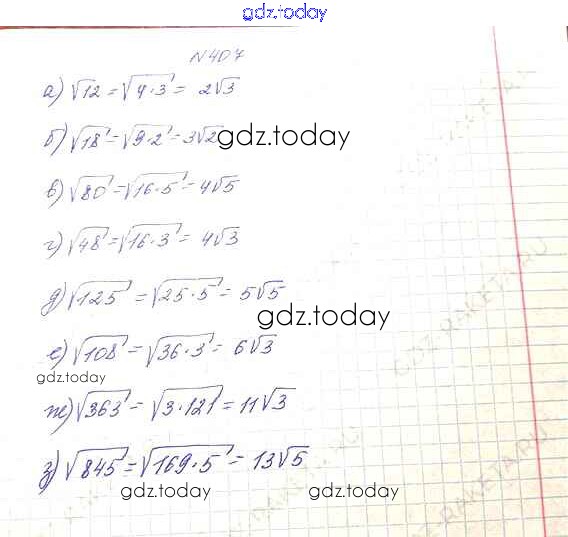 gdz.today
N 407
а) √12 = √4·3 = 2√3
б) √18 = √9·2 = 3√2
gdz.today
в) √80 = √16·5 = 4√5
г) √48 = √16·3 = 4√3
д) √125 = √25·5 = 5√5
gdz.today
е) √108 = √36·3 = 6√3
gdz.today
ж) √363 = √3·121 = 11√3
з) √845 = √169·5 = 13√5
gdz.today gdz.today